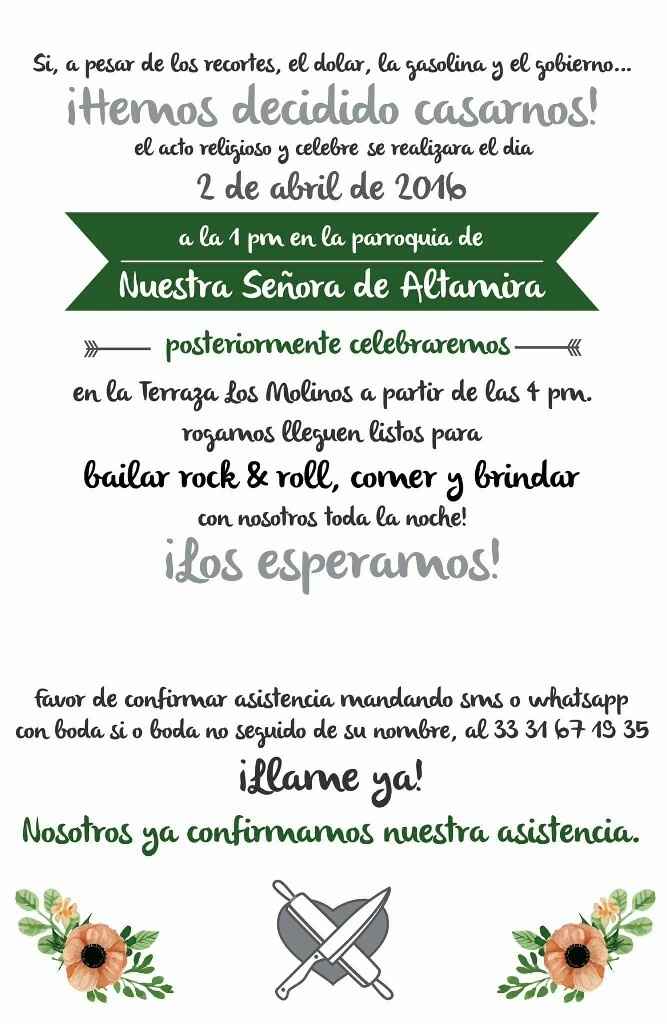 Si, a pesar de los recortes, el dolar, la gasolina y el gobierno...
¡Hemos decidido casarnos!
el acto religioso y celebre se realizara el dia
2 de abril de 2016
a la 1 pm en la parroquia de
Nuestra Señora de Altamira
posteriormente celebraremos
en la Terraza Los Molinos a partir de las 4 pm.
rogamos lleguen listos para
bailar rock & roll, comer y brindar
con nosotros toda la noche!
¡Los esperamos!
favor de confirmar asistencia mandando sms o whatsapp
con boda si o boda no seguido de su nombre, al 33 31 67 19 35
¡Llame ya!
Nosotros ya confirmamos nuestra asistencia.